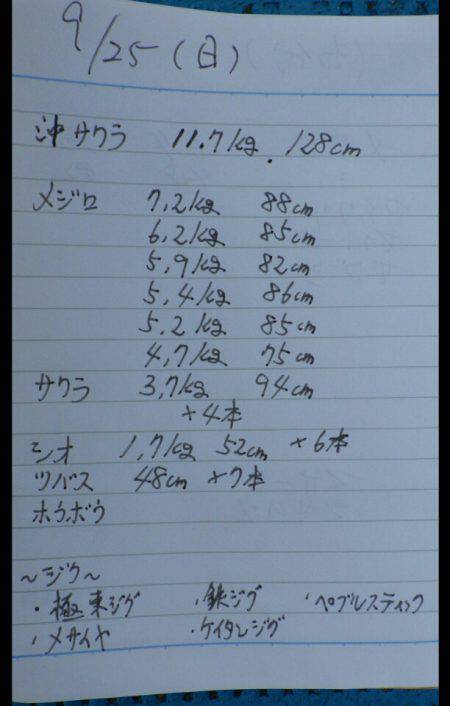 9/25(日)
沖サワラ 11.7kg. 128cm
メジロ 7,2kg 88cm
6,2kg 85cm
5,9kg 82cm
5,4kg 86cm
5,2kg 85cm
4,7kg 75cm
サワラ 3,7kg 94cm
+4本
シオ 1,7kg 52cm +6本
ツバス 48cm +7本
ホウボウ
〜ジグ〜
・極東ジグ ・鉄ジグ ・ペブルスティック
・メサイヤ ・ケイタンジグ